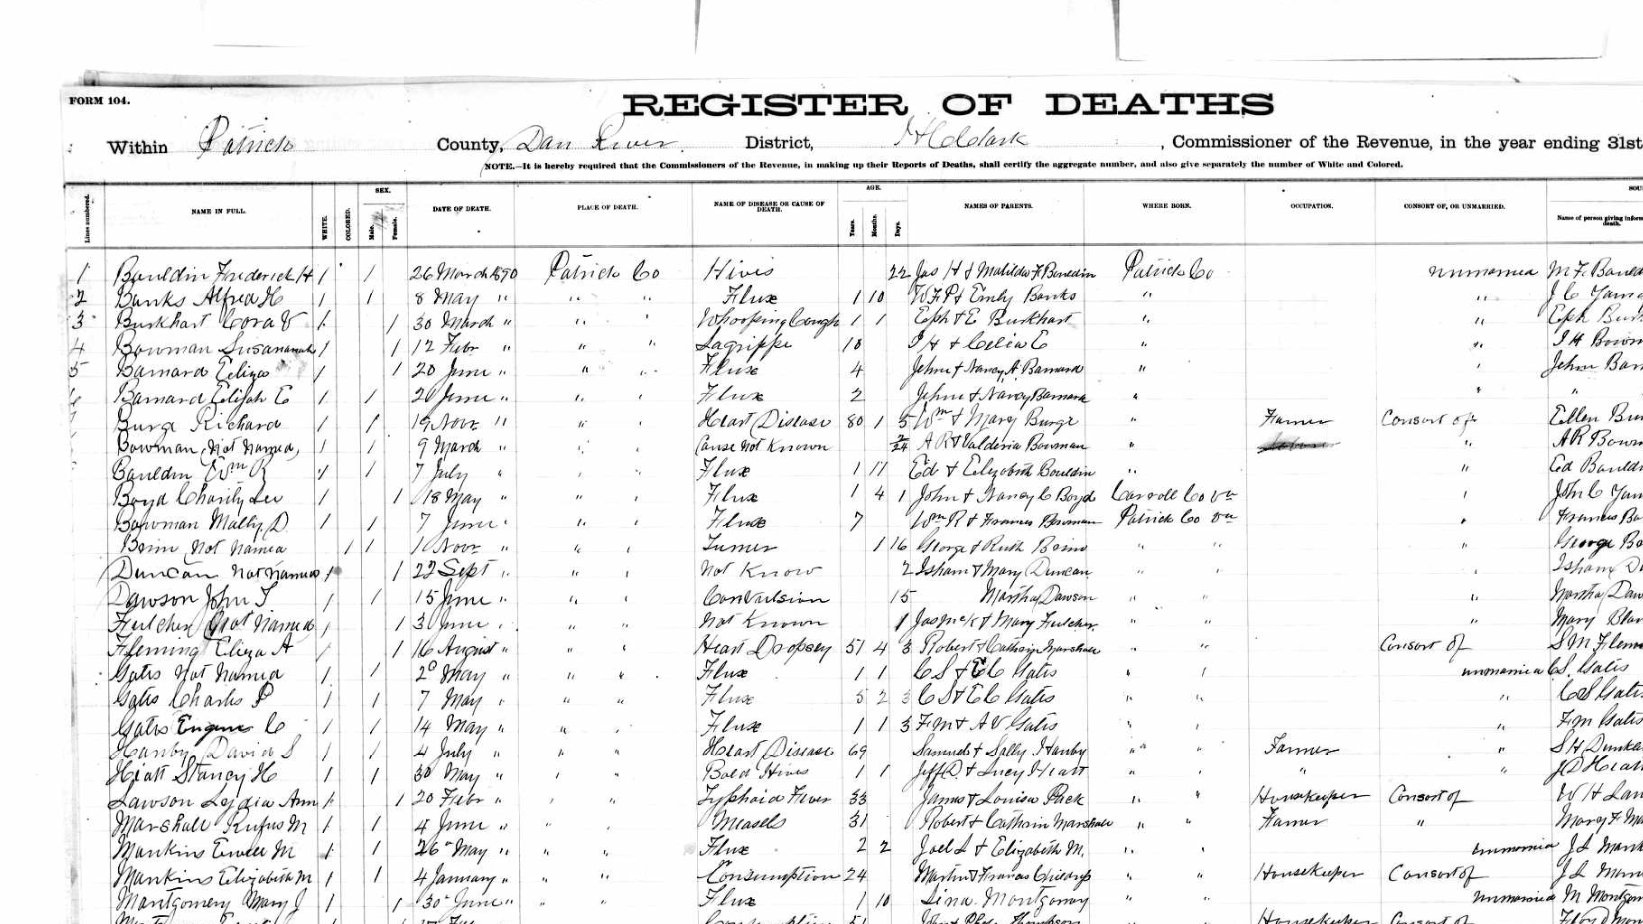 FORM 104.
REGISTER OF DEATHS
Within Patrick County, Dan River District, Commissioner of the Revenue, in the year ending 31st
NOTE.—It is hereby required that the Commissioners of the Revenue, in making up their Reports of Deaths, shall certify the aggregate number, and also give separately the number of White and Colored.
SEX. AGE. SOU
Lines numbered. NAME IN FULL. WHITE. COLORED. Male. Female. DATE OF DEATH. PLACE OF DEATH. NAME OF DISEASE OR CAUSE OF DEATH. Years. Months. Days. NAMES OF PARENTS. WHERE BORN. OCCUPATION. CONSORT OF, OR UNMARRIED. Name of person giving inform death.
1 Bouldin Frederick H 1 1 26 March 1890 Patrick Co Hives 22 Jas H & Matilda F Bouldin Patrick Co unmarried M F Bould
2 Banks Alfred H 1 1 8 May " " " Flux 1 10 W F P & Emily Banks " "
3 Burkhart Cora V 1 1 30 March " " " Whooping Cough 1 1 Eph & E Burkhart " " Eph Burk
4 Bowman Susannah 1 1 12 Febr " " " Lagrippe 18 I H & Celia E " " I H Bowm
5 Barnard Eliza 1 1 20 June " " " Flux 4 John & Nancy A Barnard " ' John Bar
6 Barnard Elijah E 1 1 2 June " " ' Flux 2 John & Nancy Barnard " " "
7 Burge Richard 1 1 19 Nov " " ' Heart Disease 80 1 5 Wm & Mary Burge " Farmer Consort of Ellen Bur
Bowman, Not Named, 1 1 9 March " Cause Not Known A R & Valderia Bowman " " A R Bowm
Bouldin Wm R 1 1 7 July " Flux 1 11 Ed & Elizabeth Bouldin " " Ed Bould
Boyd Charity Lee 1 1 18 May " " ' Flux 1 4 1 John & Nancy C Boyd Carroll Co Va ' John C
Bowman Mally D. 1 1 7 June " " ' Flux 7 Wm R & Frances Bowman Patrick Co Va " Frances Bo
Not Named 1 1 1 Nov " " ' Tumer 1 16 George & Ruth " " " George
Duncan Not Named 1 1 22 Sept " " ' Not Know 2 Isham & Mary Duncan " ' ' Isham Du
Dawson John T 1 1 15 June " " ' Convulsion 15 Martha Dawson " " " Martha Daw
Fulcher Not Named 1 1 3 June " " " Not Known 1 & Mary Fulcher " " " Mary
Fleming Eliza A 1 1 16 August " " " Heart Dropsey 51 4 3 Robert & Catharin Marshall " " Consort of S M Flem
Gates Not Named 1 1 2 May " " " Flux 1 1 C S & E C Gates " ' unmarried C S. Gates
Gates Charles P 1 1 7 May " " " Flux 5 2 3 C S & E C Gates " " " C S Gates
Gates Eugene C 1 1 14 May " " ' Flux 1 1 3 F M & A V Gates " ' " F M Gates
Hanby David S 1 1 4 July " " ' Heart Disease 69 Samuel & Sally Hanby " " Farmer " S H Dunk
Hiatt Stancy H 1 1 30 May " ' " Bold Hives 1 1 Jeff D & Lucy Hiatt " ' " " J D Hiatt
Lawson Lydia Ann 1 1 20 Febr " " ' Typhoid Fever 33 James & Louisa Pack " " Housekeeper Consort of W H Law
Marshall Rufus M 1 1 4 June " " ' Measels 31 Robert & Catharin Marshall " " Farmer " Mary F Ma
Mankins M 1 1 26 May " " " Flux 2 2 Joel L & Elizabeth M. " ' unmarried J L Mank
Mankins Elizabeth M 1 1 4 January " " " Consumption 24 Martin & Frances " " Housekeeper Consort of J L
Montgomery Mary J 1 1 30 June " " " Flux 1 10 Lina Montgomery " " unmarried M Montgom
Housekeeper Consort of